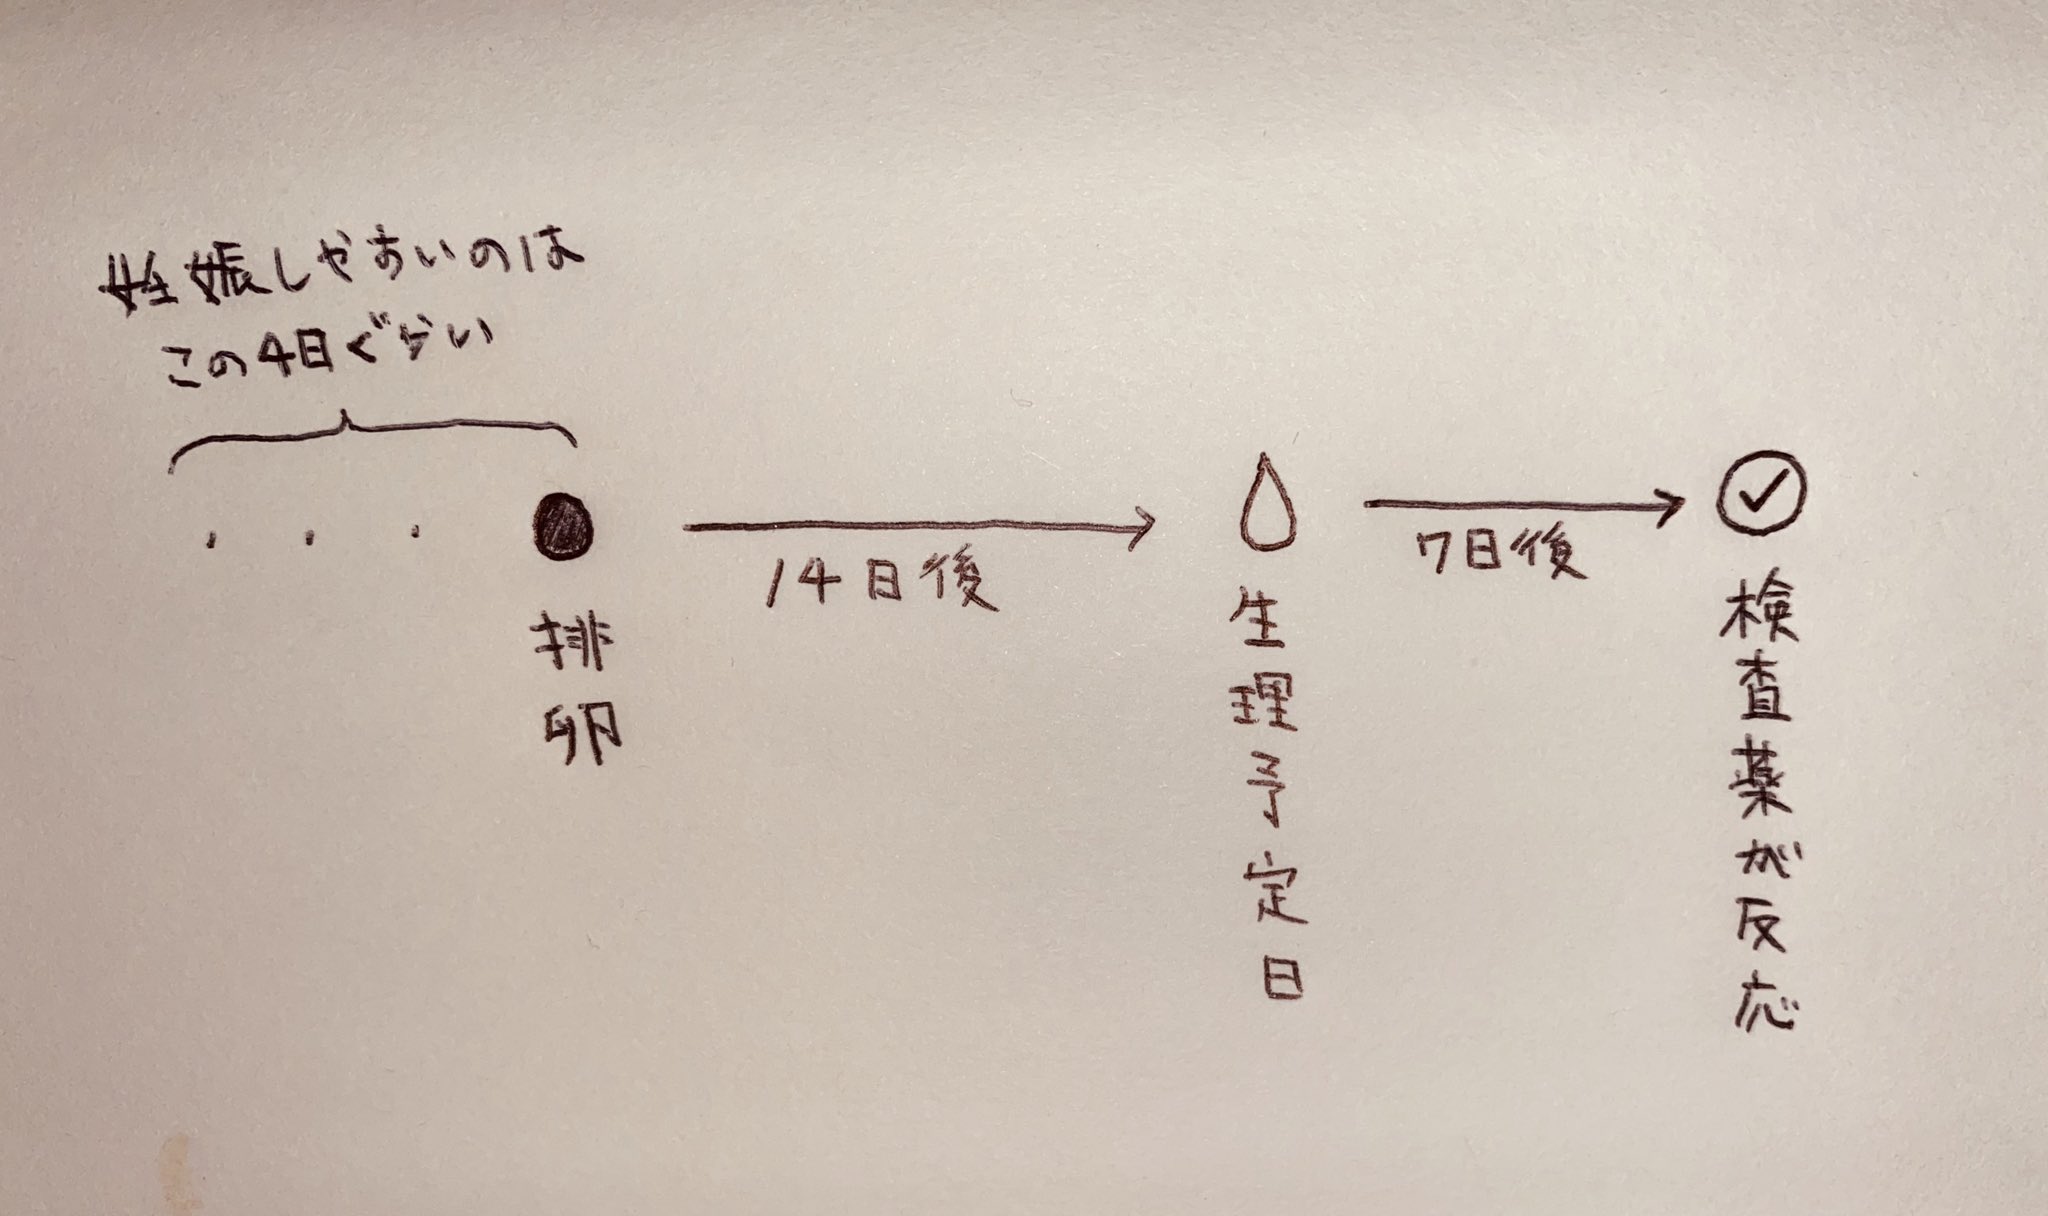 妊娠しやすいのは
この4日ぐらい
排卵
14日後
生理予定日
7日後
検査薬が反応